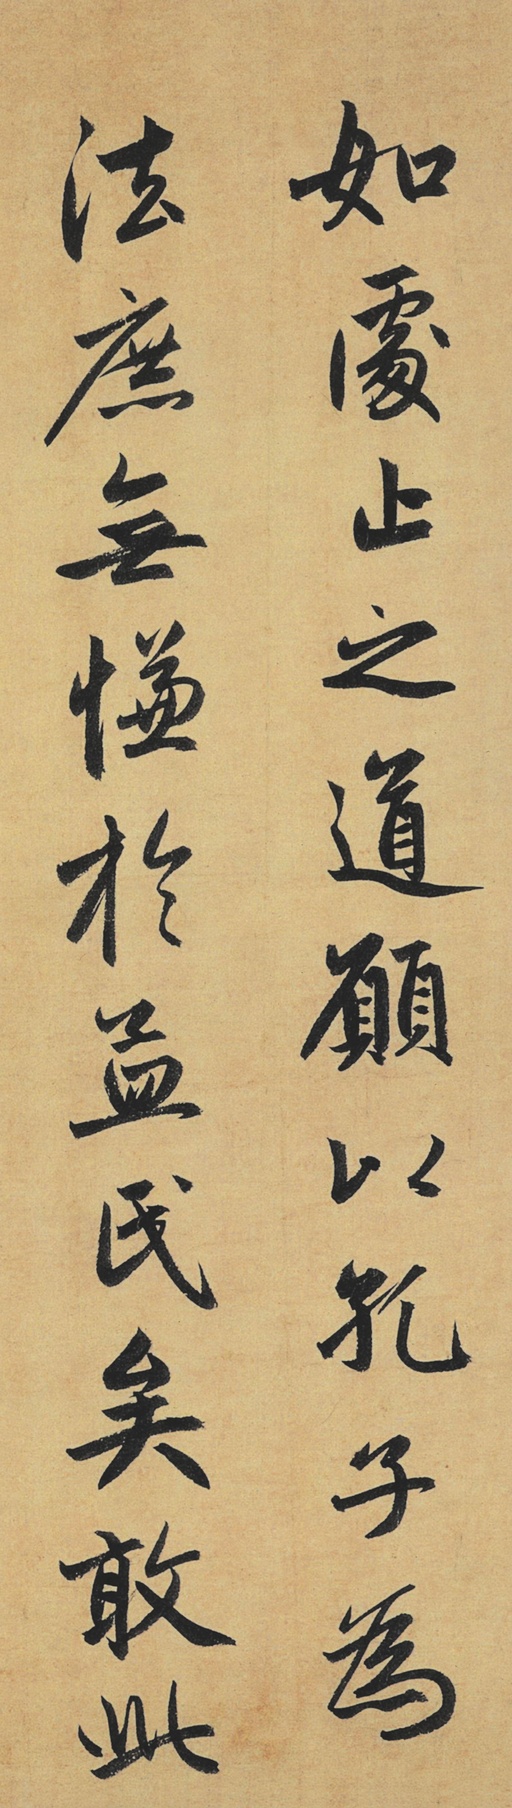 如處止之道願以孔子為
法庶無慊於益民矣敢此